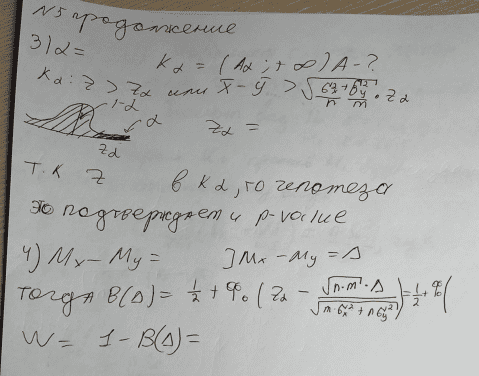 N5 продолжение
3) α = Kα = (Aα ; + ∞) A - ?
Kα : z > zα или x̄ - ȳ > √(σx²/n + σy²/m) · zα
1-α
α
zα
zα =
т.к z в Kα, то гепотеза
это подтверждает и p-value
4) Mx - My = ] Mx - My = Δ
тогда B(Δ) = 1/2 + Φ₀ ( zα - √n·m · Δ / √(m·σx² + nσy²) ) = 1/2 + Φ₀ (
W = 1 - B(Δ) =